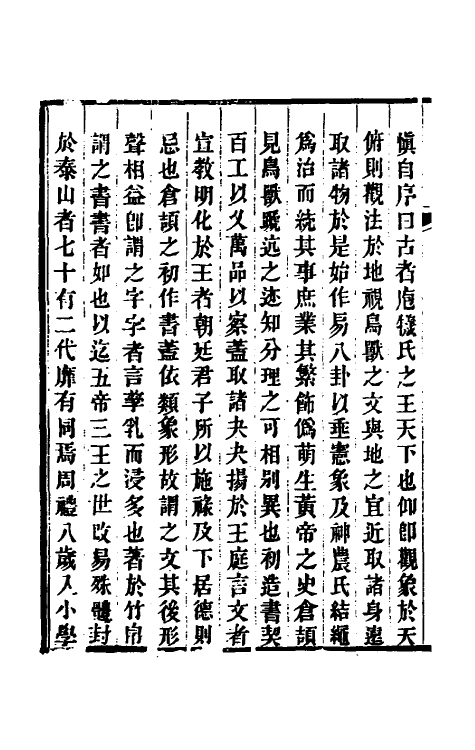 愼自序曰古者庖犧氏之王天下也仰卽觀象於天
俯則觀法於地視鳥獸之文與地之宜近取諸身遠
取諸物於是始作易八卦以垂憲象及神農氏結繩
爲治而統其事庶業其繁飾僞萌生黃帝之史倉頡
見鳥獸蹏迒之迹知分理之可相別異也初造書契
百工以乂萬品以察蓋取諸夬夬揚於王庭言文者
宣教明化於王者朝廷君子所以施祿及下居德則
忌也倉頡之初作書蓋依類象形故謂之文其後形
聲相益卽謂之字字者言孳乳而浸多也著於竹帛
謂之書書者如也以迄五帝三王之世改易殊體封
於泰山者七十有二代靡有同焉周禮八歲入小學